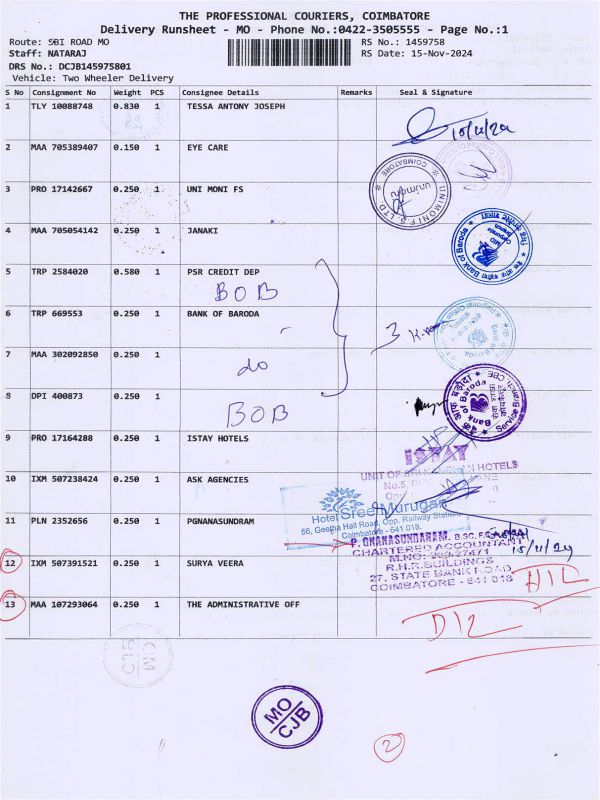 THE PROFESSIONAL COURIERS, COIMBATORE
Delivery Runsheet - MO - Phone No.:0422-3505555 - Page No.:1
Route: SBI ROAD MO RS No.: 1459758
Staff: NATARAJ RS Date: 15-Nov-2024
DRS No.: DCJB145975801
Vehicle: Two Wheeler Delivery
S No Consignment No Weight PCS Consignee Details Remarks Seal & Signature
1 TLY 10088748 0.830 1 TESSA ANTONY JOSEPH
15/11/24
2 MAA 705389407 0.150 1 EYE CARE
COIMBATORE
3 PRO 17142667 0.250 1 UNI MONI FS
unimoni
UNIMONI FS LTD
4 MAA 705054142 0.250 1 JANAKI
Bank of Baroda
5 TRP 2584020 0.580 1 PSR CREDIT DEP
BOB
6 TRP 669553 0.250 1 BANK OF BARODA
3
Regional Office
Bank of Baroda
7 MAA 302092850 0.250 1
do
8 DPI 400873 0.250 1
BOB
Bank of Baroda
Service Branch
9 PRO 17164288 0.250 1 ISTAY HOTELS
ISTAY
UNIT OF HOTELS
10 IXM 507238424 0.250 1 ASK AGENCIES
No.5,
Hotel Sree Murugan
56, Geetha Hall Road, Opp. Railway Station
Coimbatore - 641 018.
11 PLN 2352656 0.250 1 PGNANASUNDRAM
P. GNANASUNDARAM, B.SC, F.C.A
CHARTERED ACCOUNTANT
R.H.R.BUILDINGS
27, STATE BANK ROAD
COIMBATORE - 641 018
15/11/24
12 IXM 507391521 0.250 1 SURYA VEERA
HIL
13 MAA 107293064 0.250 1 THE ADMINISTRATIVE OFF
D12
MO
CJB
2